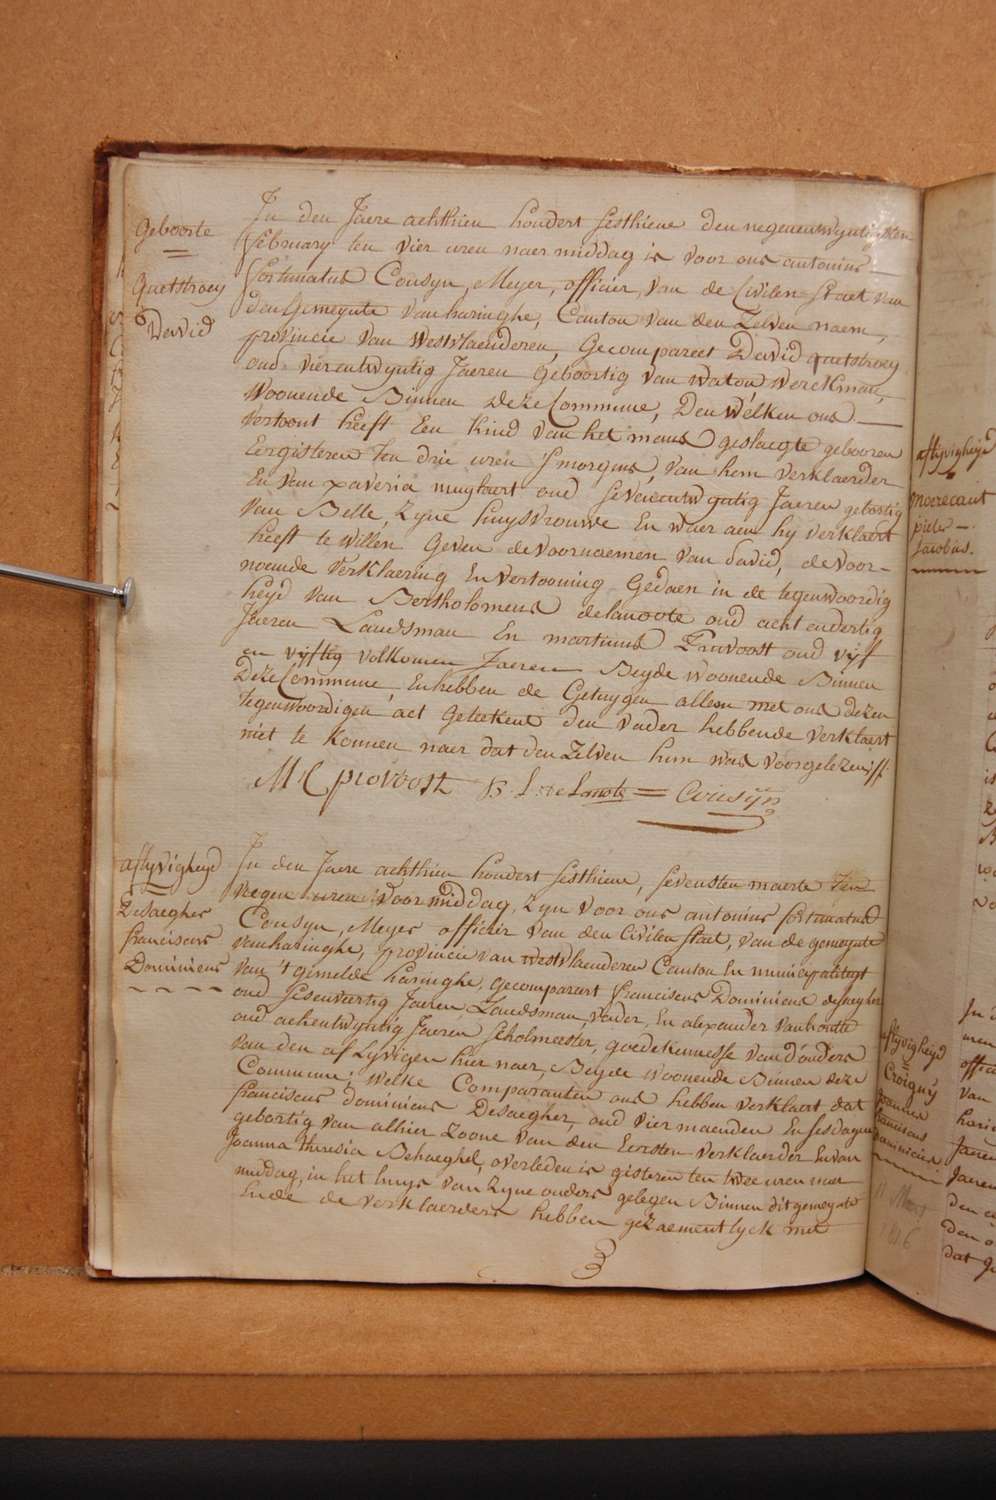 Geboorte
Quetstroey
David
In den Jaere achthien hondert sesthiene den negenentwyntigsten
february ten vier uren naer middag is voor ons antonius
fortunatus Cousyn, Meyer, officier, van de Civilen Staet van
den Gemeynte van haringhe, Canton van den Zelven naem,
provincie van Westvlaenderen, Gecompareet David quetstroey
oud vierentwyntig Jaeren geboortig van watou Werckman,
Woonende Binnen deze Commune, Den Welken ons
vertoont heeft Een Kind van het mans geslagte gebooren
Eergisteren ten drie uren s'morgens, van hem verklaerder
En van xaveria muylaert oud sevenentwyntig Jaeren gebortig
van Belle, Zyne huysvrouwe En waer aen hy verklaert
heeft te willen Geven de voornaemen van david, de voor-
noemde verklaering En vertooning Gedaen in de tegenwoordig
heyd van Bertholomeus delanoote oud acht endertig
Jaeren Landsman En martinus Provoost oud vyf
en vyftig volkomen Jaeren Beyde woonende Binnen
Deze Commune Enhebben de Getuygen alleen met ons dezen
tegenwoordigen act Geteekent den vader hebbende verklaert
niet te konnen naer dat den Zelven hem was voorgelezen
provoost Cousyn
aflyvigheyd
Desaegher
franciscus
Dominicus
In den Jaere achthien hondert sesthiene, sevensten maerte Ten
negen uren voormiddag, Zyn voor ons antonius fortunatus
Cousyn, Meyer officier van den Civilen Staet, van de gemeynte
van haringhe, provincie van westvlaenderen Canton En municipaliteyt
van 't gemelde haringhe, gecomparart franciscus Dominicus desaegher
oud sesenveertig Jaeren Landsman, vader, En alexander vanhoutte
oud achentwyntig Jaeren scholmeester, goedekennesse van d'ouders
van den aflyvigen hier naer, Beyde woonende Binnen deze
Commune, Welke Comparanten ons hebben verklaert dat
franciscus dominicus Desaegher, oud vier maenden En ses dagen
gebortig van alhier Zoone van den Eersten verklaerder En van
Joanna theresia Behaeghel, overleden is gisteren ten twee uren naer
middag, in het huys van Zyne ouders gelegen Binnen dit gemeynte
Ende de verklaerders hebben gezaementlyck met
aflyvigheyd
moerecant
pieter
Jacobus.
aflyvigheyd
Croigny
Joannes
franciscus
11 Maert
1816